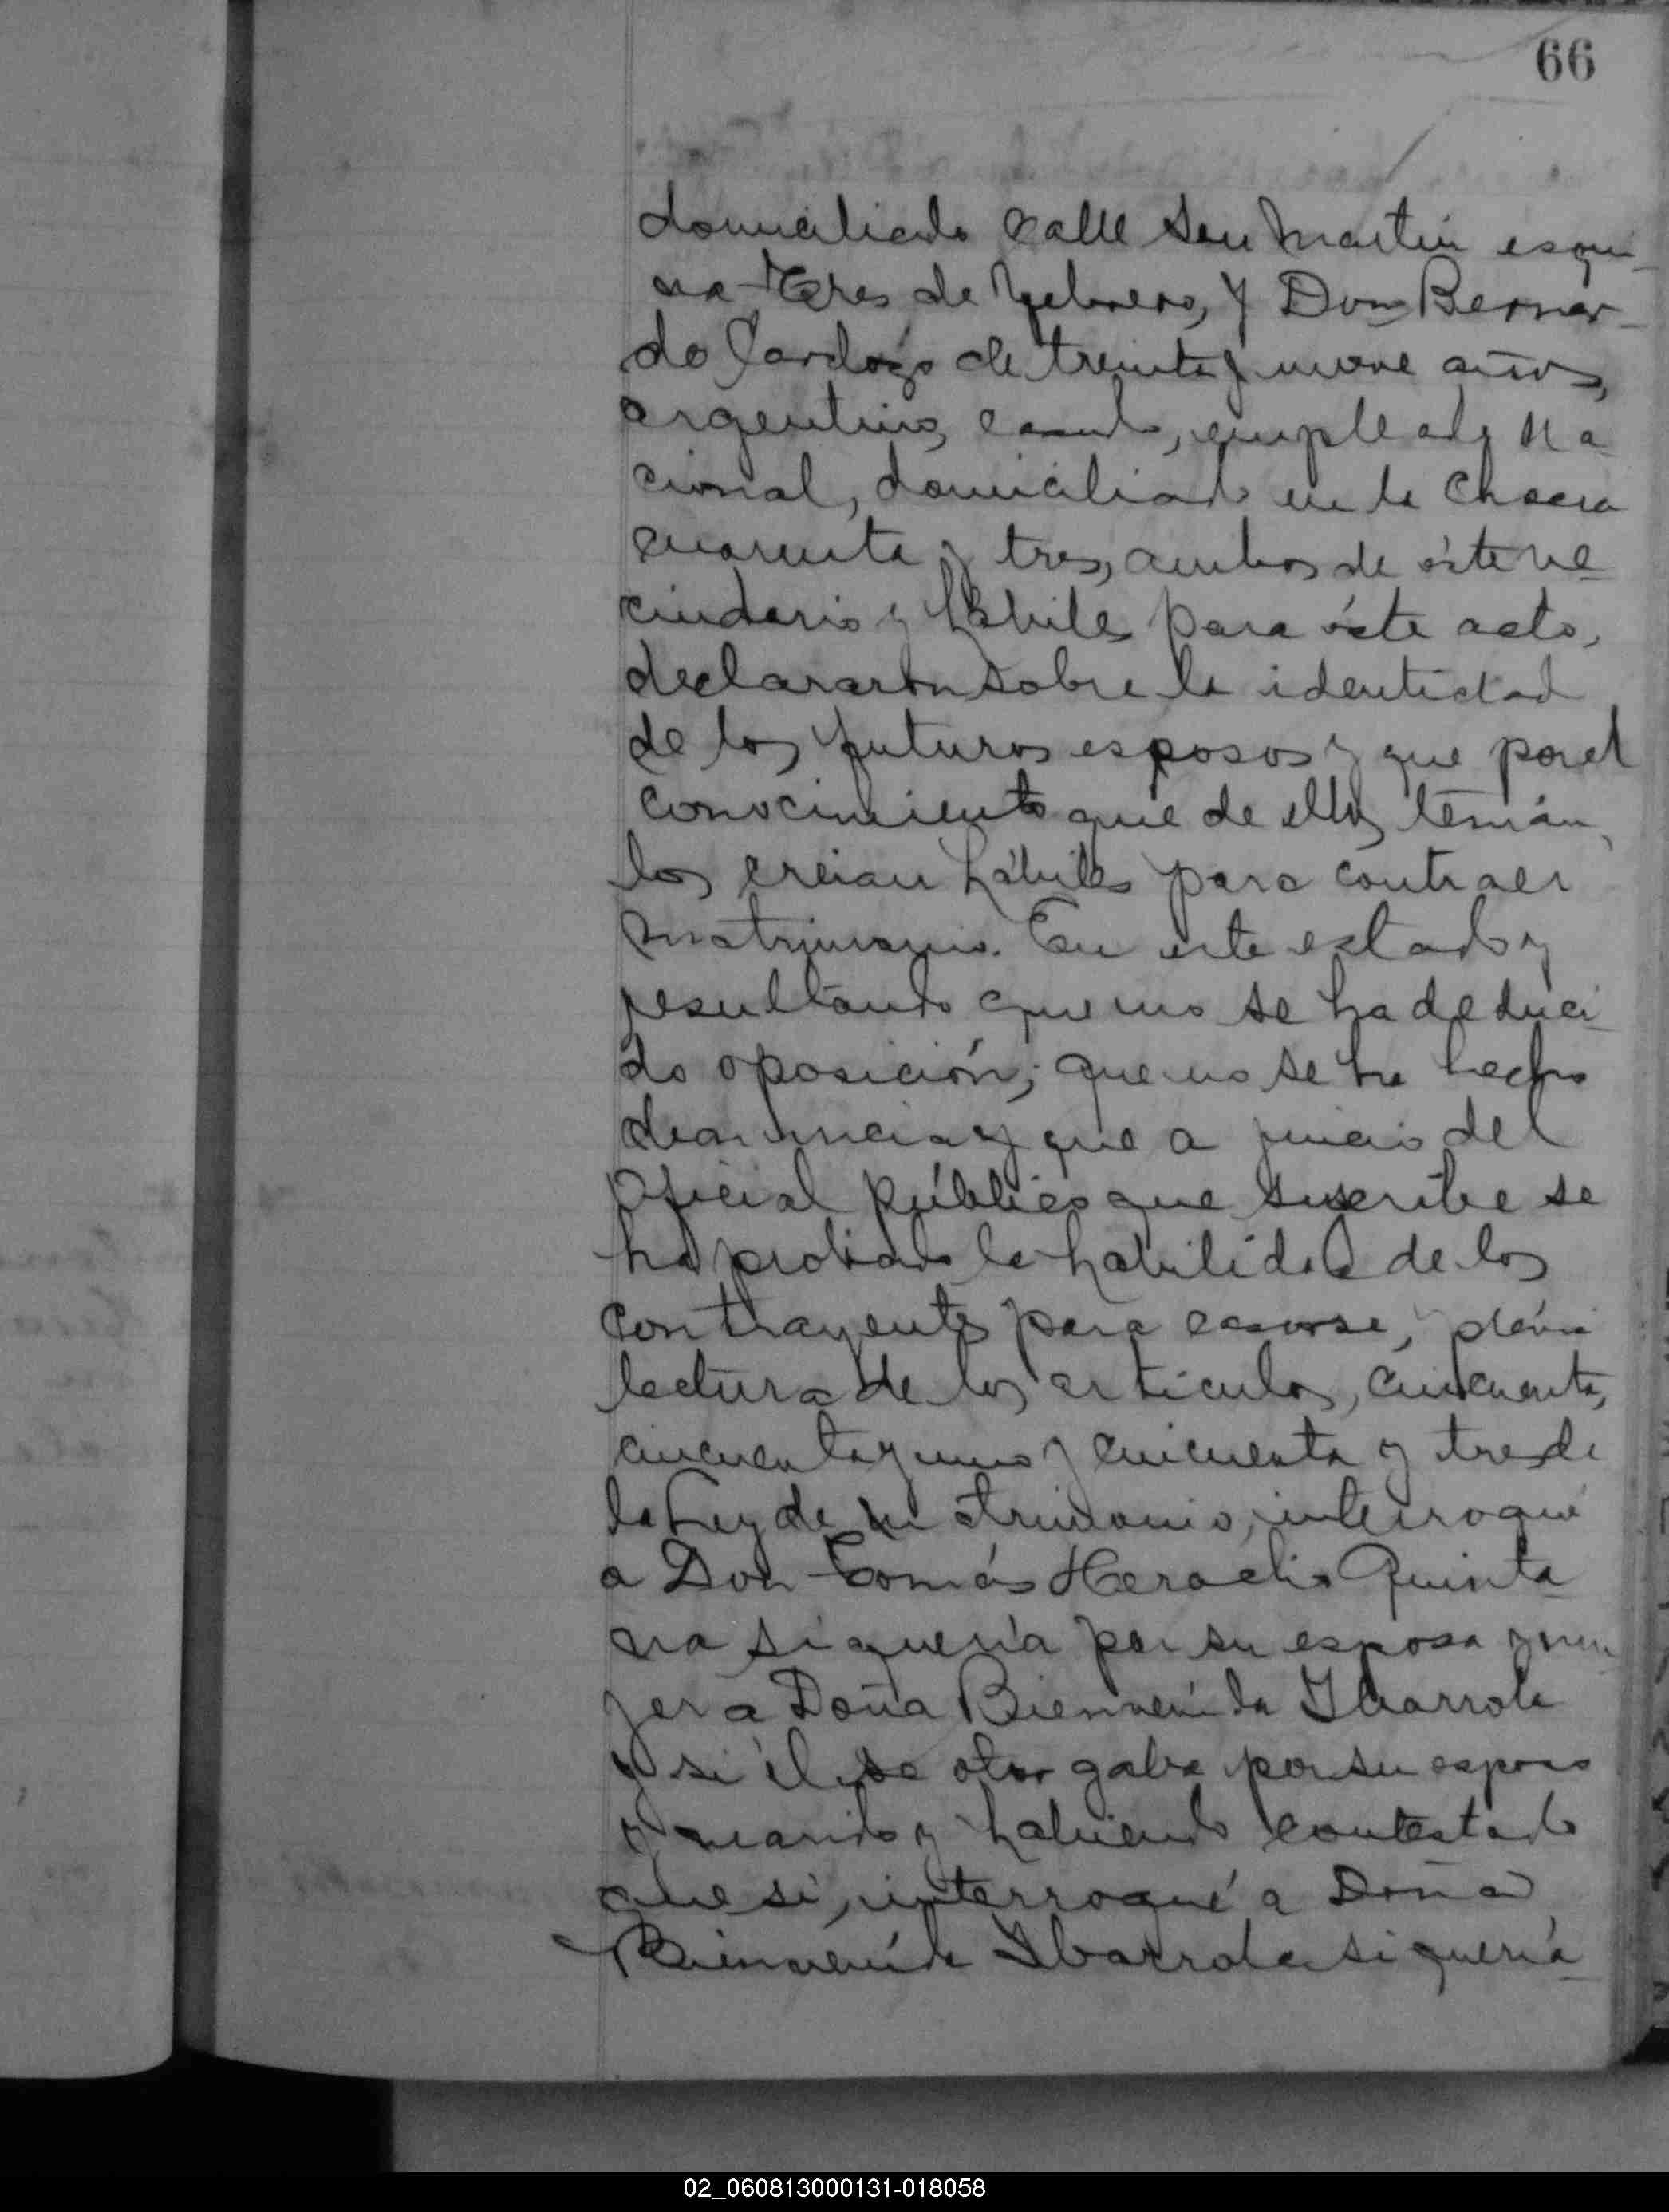 66
domiciliado calle San Martín esqui-
na Tres de Febrero, y Don Bernar-
do Cardozo de treinta y nueve años,
argentino, casado, empleado na
cional, domiciliado en la chacra
cuarenta y tres, ambos de éste ve-
cindario y hábiles para éste acto,
declararon sobre la identidad
de los futuros esposos y que por el
conocimiento que de ellos tenían,
los creían hábiles para contraer
matrimonio. En este estado y
resultando que no se ha deduci-
do oposición; que no se ha hecho
denuncia y que a juicio del
Oficial público que suscribe se
ha probado la habilidad de los
contrayentes para casarse, prévia
lectura de los artículos, cincuenta,
cincuenta y uno y cincuenta y tres de
la Ley de matrimonio, interrogué
a Don Tomás Heraclio Quinta
na si quería por su esposa y mu
jer a Doña Bienvenida Ibarrola
y si él se otorgaba por su esposo
y marido y habiendo contestado
que sí, interrogué a Doña
Bienvenida Ibarrola si quería
02_060813000131-018058